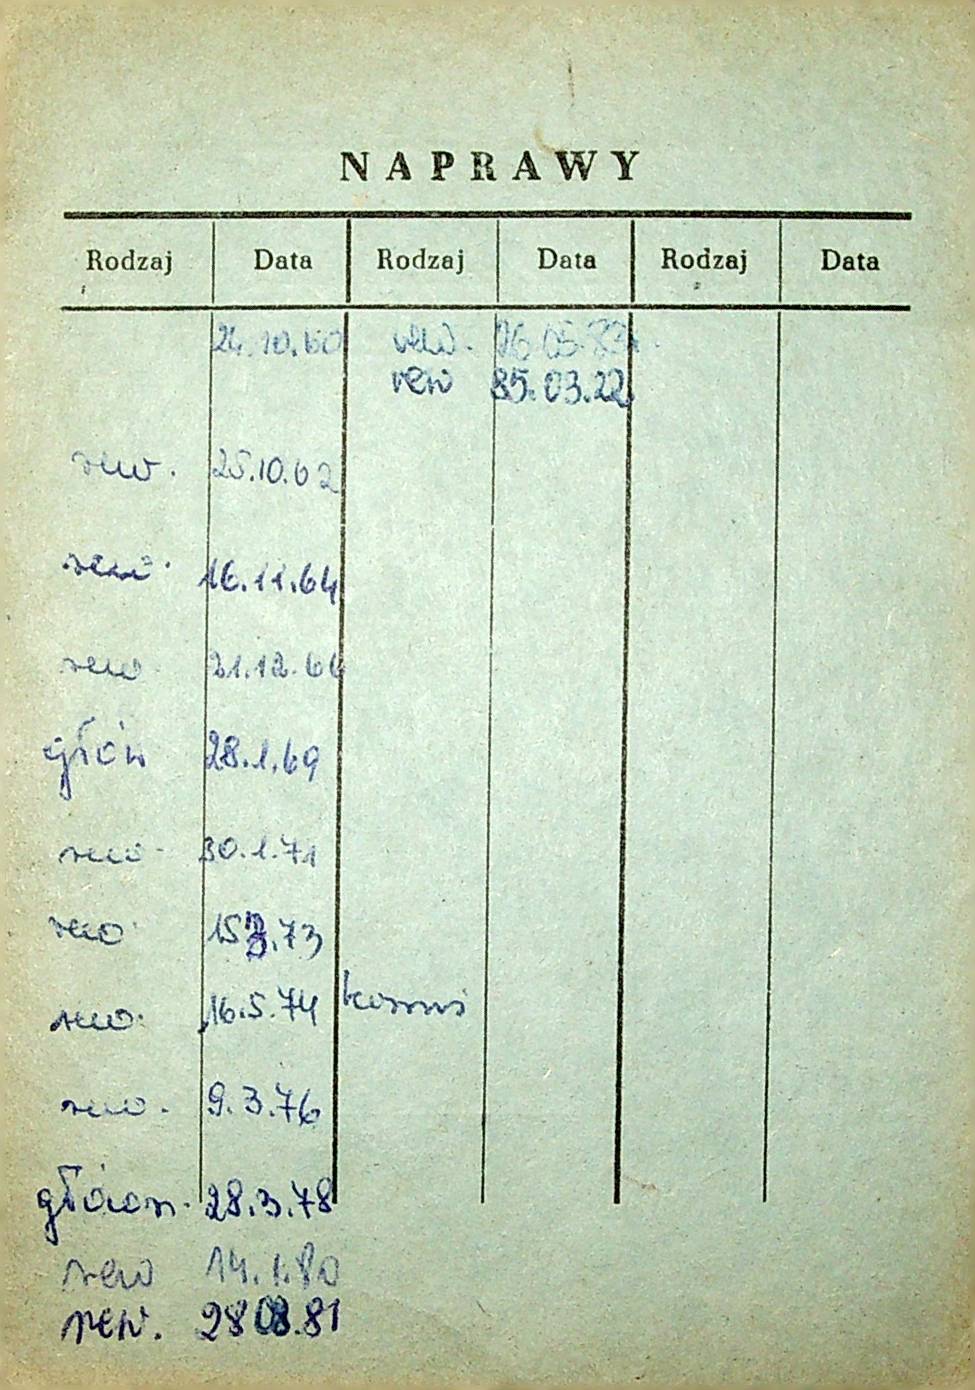 NAPRAWY
Rodzaj Data Rodzaj Data Rodzaj Data
24.10.60 rew. 26.05.83r.
rew 85.03.22
rew. 25.10.62
rew. 16.11.64
rew 21.12.66
głów 28.1.69
rew. 30.1.71
rew 15 3.73
rew. 16.5.74
rew. 9.3.76
główn. 28.3.78
rew 14.1.80
rew. 28 08.81